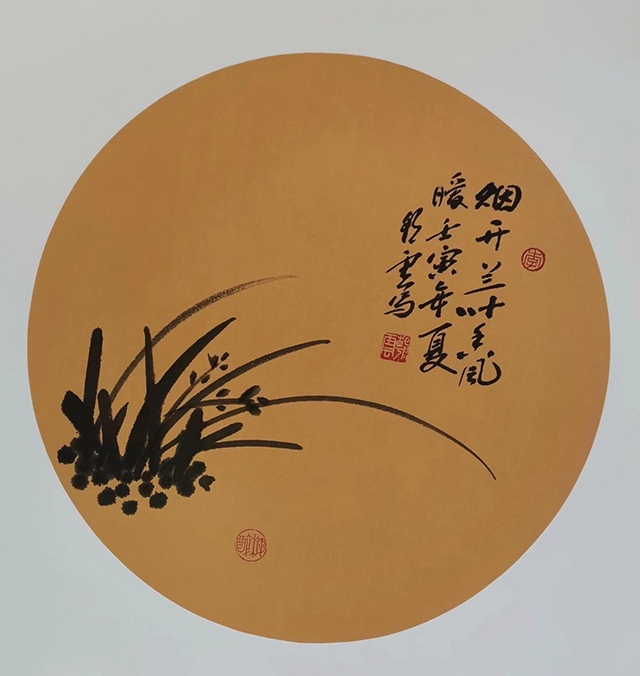 烟开兰叶香风
暖壬寅年夏
雲写